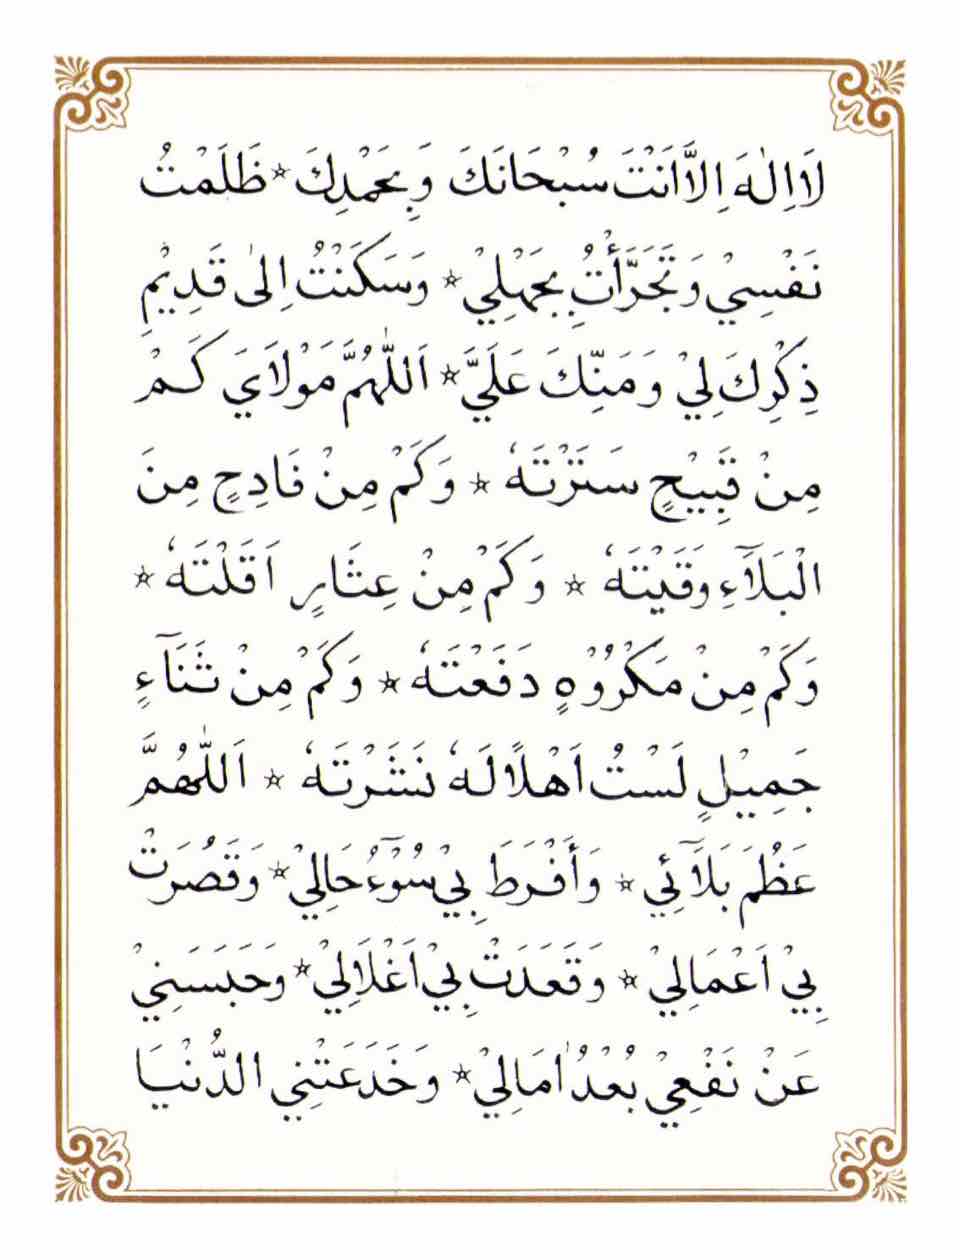 لَا اِلٰهَ اِلَّا اَنْتَ سُبْحَانَكَ وَبِحَمْدِكَ ٭ ظَلَمْتُ
نَفْسِيْ وَتَجَرَّأْتُ بِجَهْلِيْ ٭ وَسَكَنْتُ اِلٰى قَدِيْمِ
ذِكْرِكَ لِيْ وَمَنِّكَ عَلَيَّ ٭ اَللّٰهُمَّ مَوْلَايَ كَمْ
مِنْ قَبِيْحٍ سَتَرْتَهٗ ٭ وَكَمْ مِنْ فَادِحٍ مِنَ
الْبَلَآءِ وَقَيْتَهٗ ٭ وَكَمْ مِنْ عِثَارٍ اَقَلْتَهٗ ٭
وَكَمْ مِنْ مَكْرُوْهٍ دَفَعْتَهٗ ٭ وَكَمْ مِنْ ثَنَآءٍ
جَمِيْلٍ لَسْتُ اَهْلًا لَهٗ نَشَرْتَهٗ ٭ اَللّٰهُمَّ
عَظُمَ بَلَآئِي ٭ وَأَفْرَطَ بِيْ سُوْٓءُ حَالِيْ ٭ وَقَصُرَتْ
بِيْ اَعْمَالِيْ ٭ وَقَعَدَتْ بِيْ اَغْلَالِيْ ٭ وَحَبَسَنِيْ
عَنْ نَفْعِيْ بُعْدُ اٰمَالِيْ ٭ وَخَدَعَتْنِي الدُّنْيَا